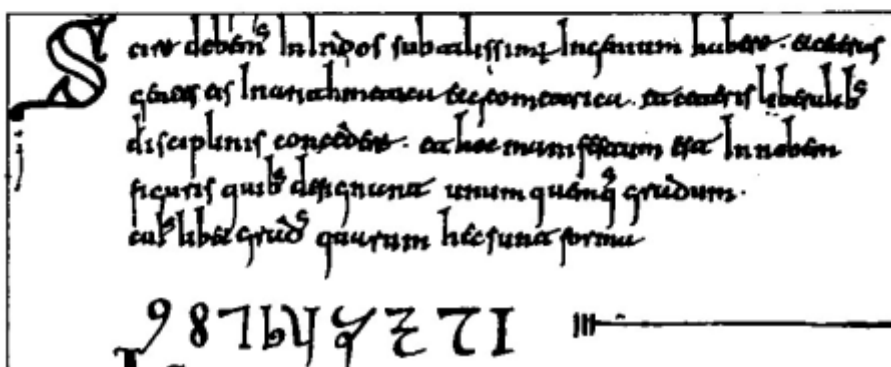 Scire debemꝰ In Indos subtilissimū Ingenium habere. et ceteras
gētes eis In arithmetica et geometrica. et ceteris liberalibꝰ
disciplinis concedere. et hoc manifestum est In nobem
figuris quibꝰ designant unum quemqꝰ gradum.
cuiꝰlibet gradꝰ quarum hec sunt forma
9 8 7 6 5 4 3 2 1